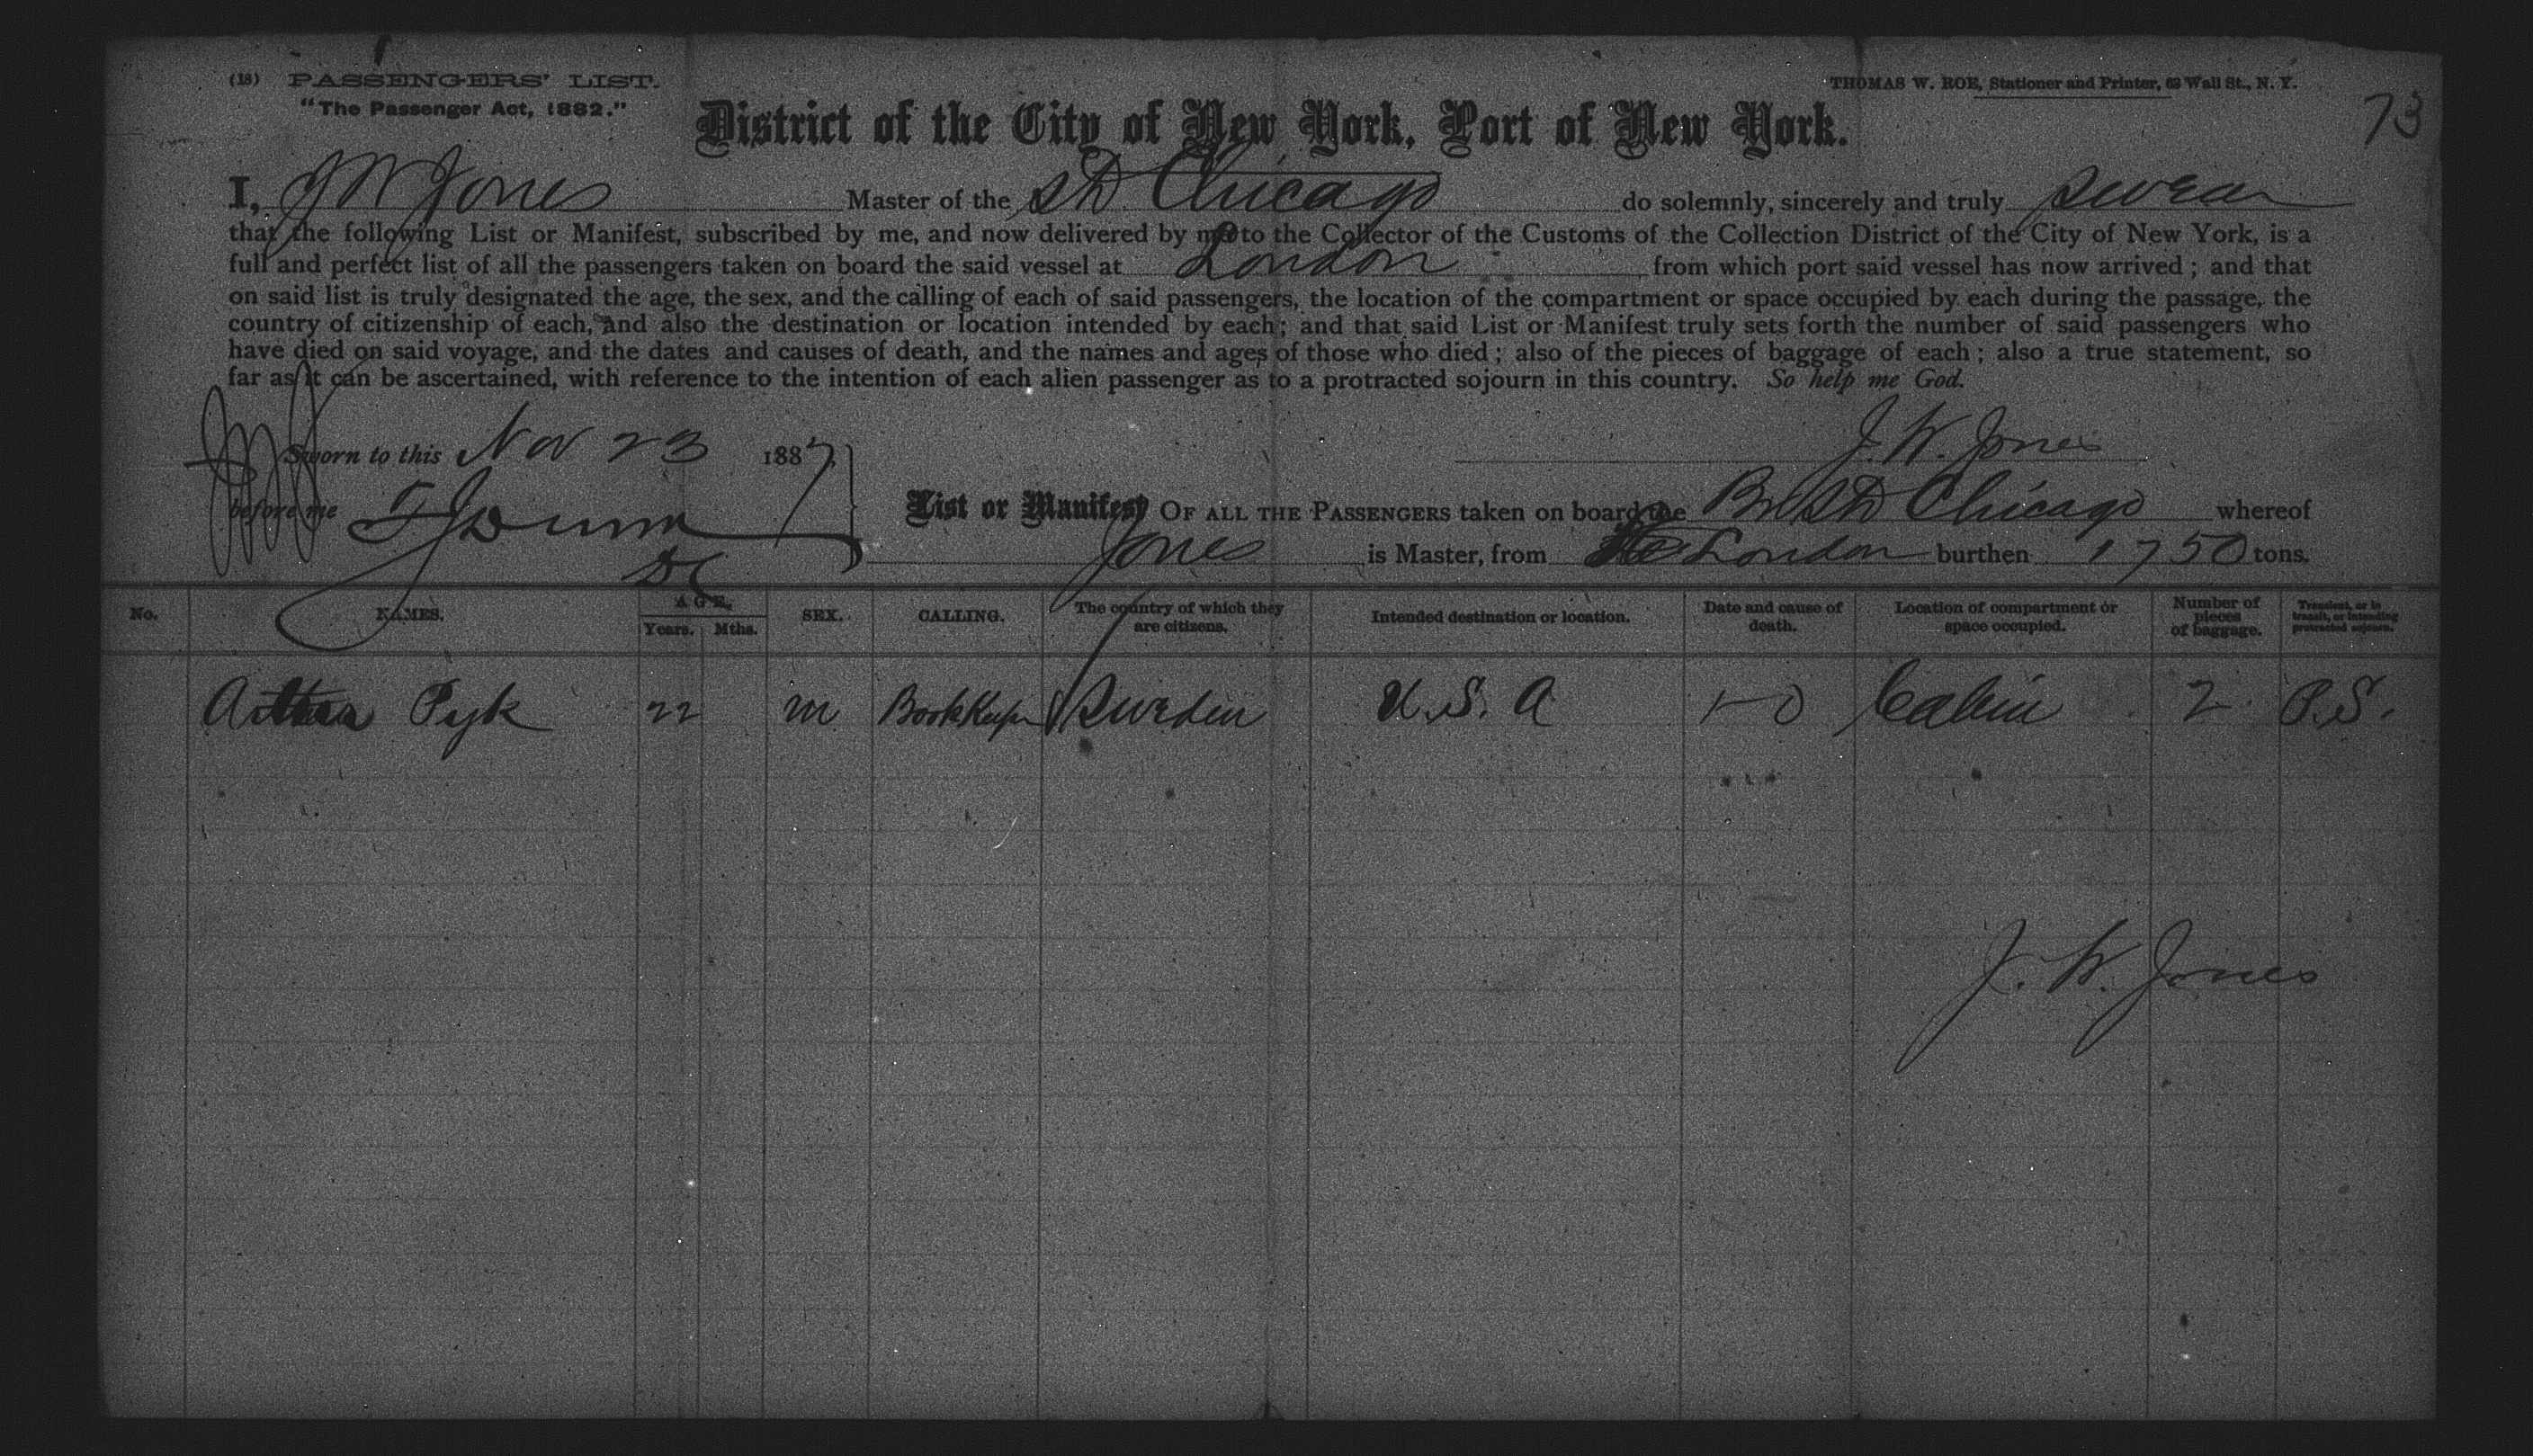 (18) PASSENGERS' LIST.
"The Passenger Act, 1882."
THOMAS W. ROE, Stationer and Printer, 62 Wall St., N. Y.
73
District of the City of New York, Port of New York.
I, J W Jones Master of the Chicago do solemnly, sincerely and truly swear
that the following List or Manifest, subscribed by me, and now delivered by me to the Collector of the Customs of the Collection District of the City of New York, is a
full and perfect list of all the passengers taken on board the said vessel at London from which port said vessel has now arrived; and that
on said list is truly designated the age, the sex, and the calling of each of said passengers, the location of the compartment or space occupied by each during the passage, the
country of citizenship of each, and also the destination or location intended by each; and that said List or Manifest truly sets forth the number of said passengers who
have died on said voyage, and the dates and causes of death, and the names and ages of those who died; also of the pieces of baggage of each; also a true statement, so
far as it can be ascertained, with reference to the intention of each alien passenger as to a protracted sojourn in this country. So help me God.
Sworn to this Nov 23 1887
J. W. Jones
before me
List or Manifest OF ALL THE PASSENGERS taken on board the Br Chicago whereof
Jones is Master, from London burthen 1750 tons.
No. NAMES. AGE. Years. Mths. SEX. CALLING. The country of which they are citizens. Intended destination or location. Date and cause of death. Location of compartment or space occupied. Number of pieces of baggage. Transient, or in transit, or intending protracted sojourn.
Pyk 22 M BookKeeper Sweden U.S.A Cabin 2 P.S.
J. W. Jones